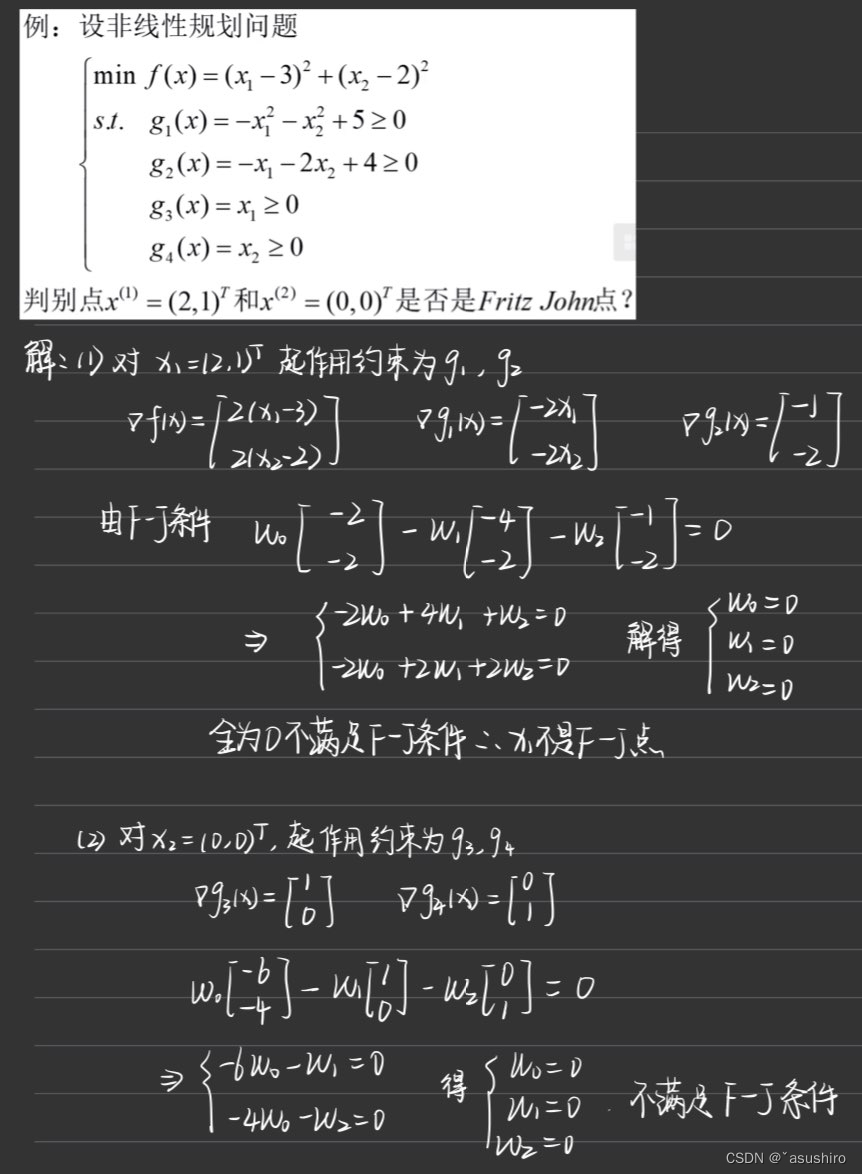 例：设非线性规划问题
min f(x) = (x₁ − 3)² + (x₂ − 2)²
s.t. g₁(x) = −x₁² − x₂² + 5 ≥ 0
g₂(x) = −x₁ − 2x₂ + 4 ≥ 0
g₃(x) = x₁ ≥ 0
g₄(x) = x₂ ≥ 0
判别点x⁽¹⁾ = (2,1)ᵀ和x⁽²⁾ = (0,0)ᵀ是否是Fritz John点？
解：(1) 对 x₁=(2,1)ᵀ 起作用约束为 g₁, g₂
∇f(x) = [2(x₁-3) ; 2(x₂-2)] ∇g₁(x) = [-2x₁ ; -2x₂] ∇g₂(x) = [-1 ; -2]
由F-J条件 w₀[-2 ; -2] - w₁[-4 ; -2] - w₂[-1 ; -2] = 0
⇒ { -2w₀ + 4w₁ + w₂ = 0 ; -2w₀ + 2w₁ + 2w₂ = 0 解得 { w₀ = 0 ; w₁ = 0 ; w₂ = 0
全为0不满足F-J条件 ∴ x₁不是F-J点
(2) 对 x₂ = (0,0)ᵀ, 起作用约束为 g₃, g₄
∇g₃(x) = [1 ; 0] ∇g₄(x) = [0 ; 1]
w₀[-6 ; -4] - w₁[1 ; 0] - w₂[0 ; 1] = 0
⇒ { -6w₀ - w₁ = 0 ; -4w₀ - w₂ = 0 得 { w₀ = 0 ; w₁ = 0 ; w₂ = 0 . 不满足F-J条件
CSDN @ˇasushiro